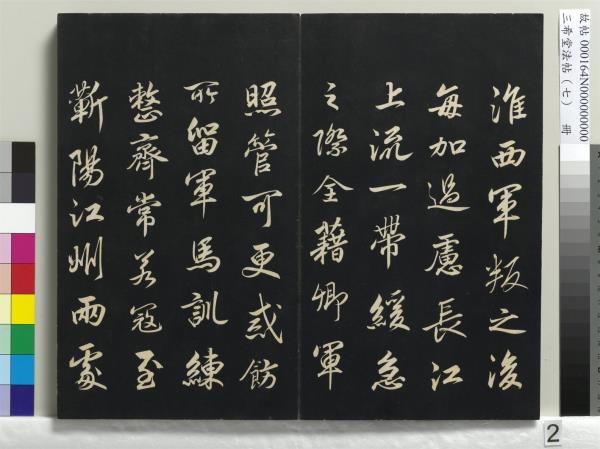 淮西軍叛之後
每加過慮長江
上流一帶緩急
之際全藉卿軍
照管可更戒飭
所留軍馬訓練
整齊常若寇至
蘄陽江州兩處
故帖 000164N000000000
三希堂法帖(七) 冊
2